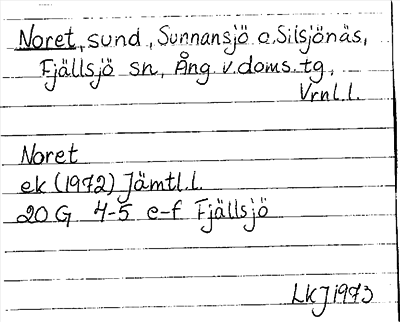 Noret, sund, Sunnansjö o. Silsjönäs,
Fjällsjö sn, Ång v. doms. tg,
Vrnl. l.
Noret
ek (1972) Jämtl. l.
20 G 4-5 e-f Fjällsjö
LKJ 1973